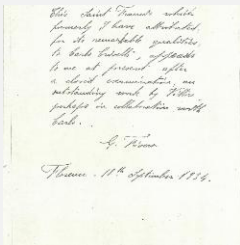 This Saint Francis which
formerly I have attributed
for its remarkable qualities
to Carlo Crivelli, appears
to me at present after
a closer examination, an
outstanding work by Vittorio
perhaps in collaboration with
Carlo.
G. Fiocco
Florence - 11th September 1934.